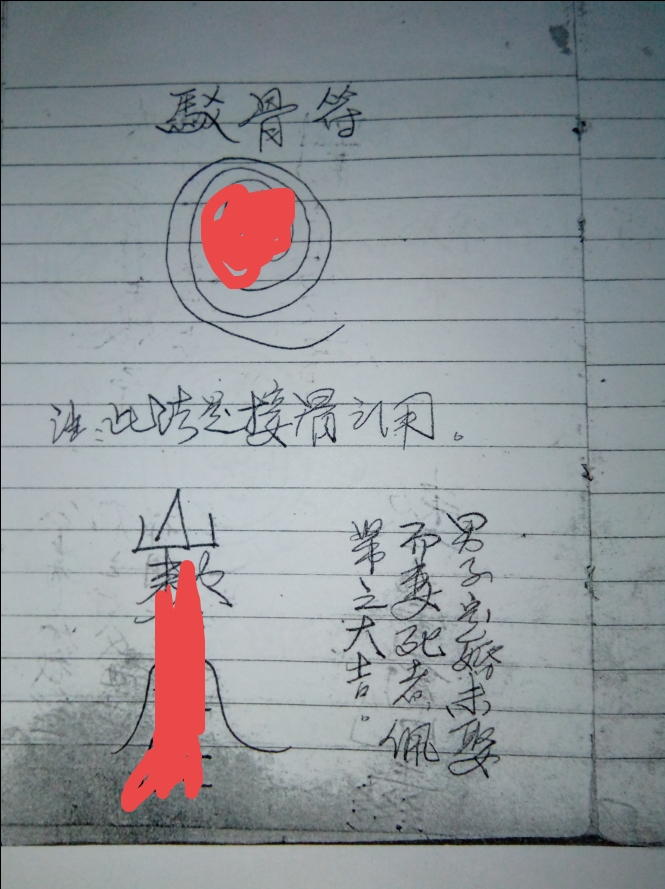 駁骨符
注:此法是接骨之用。
男子定婚未娶
而妻死者佩
帶之大吉。